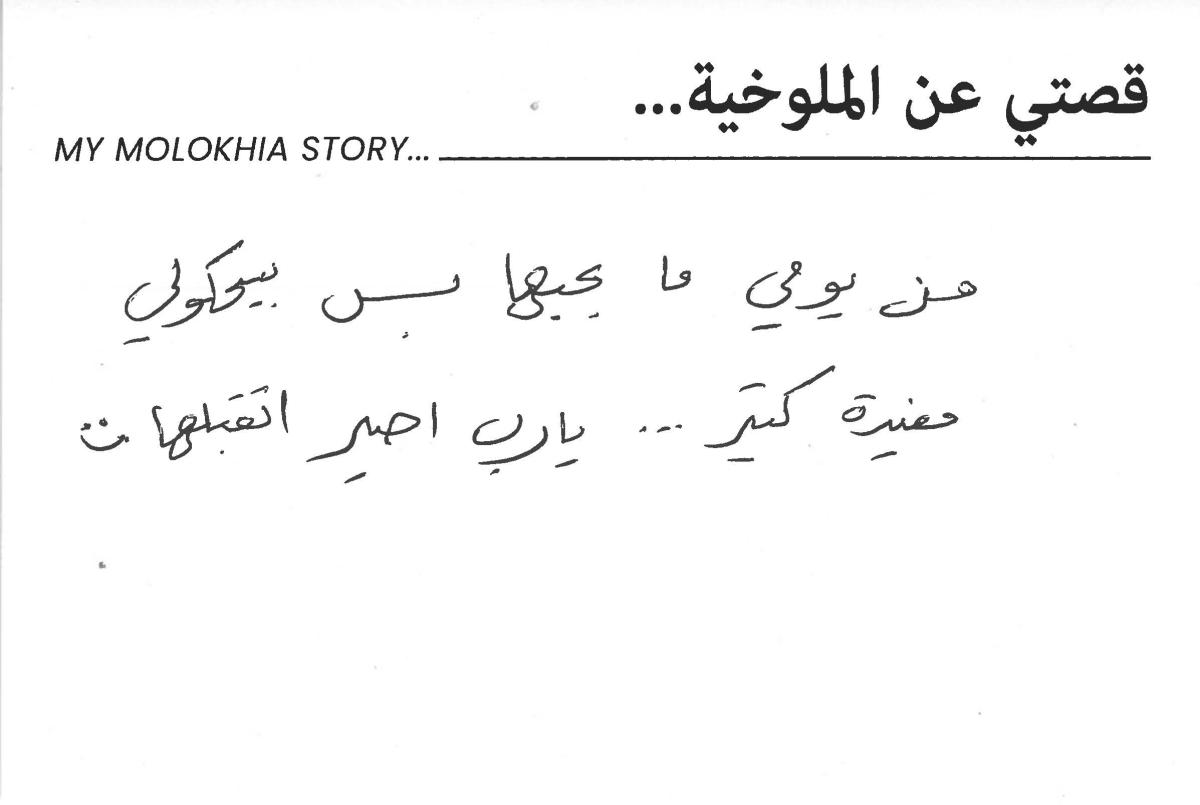 قصتي عن الملوخية...
MY MOLOKHIA STORY...
من يومي ما بحبها بس بيحكولي
مفيدة كتير ... يارب اصير اتقبلها